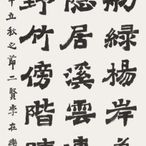 綠楊岸
隱居溪雲
野竹傍階
立秋之節二賢李在